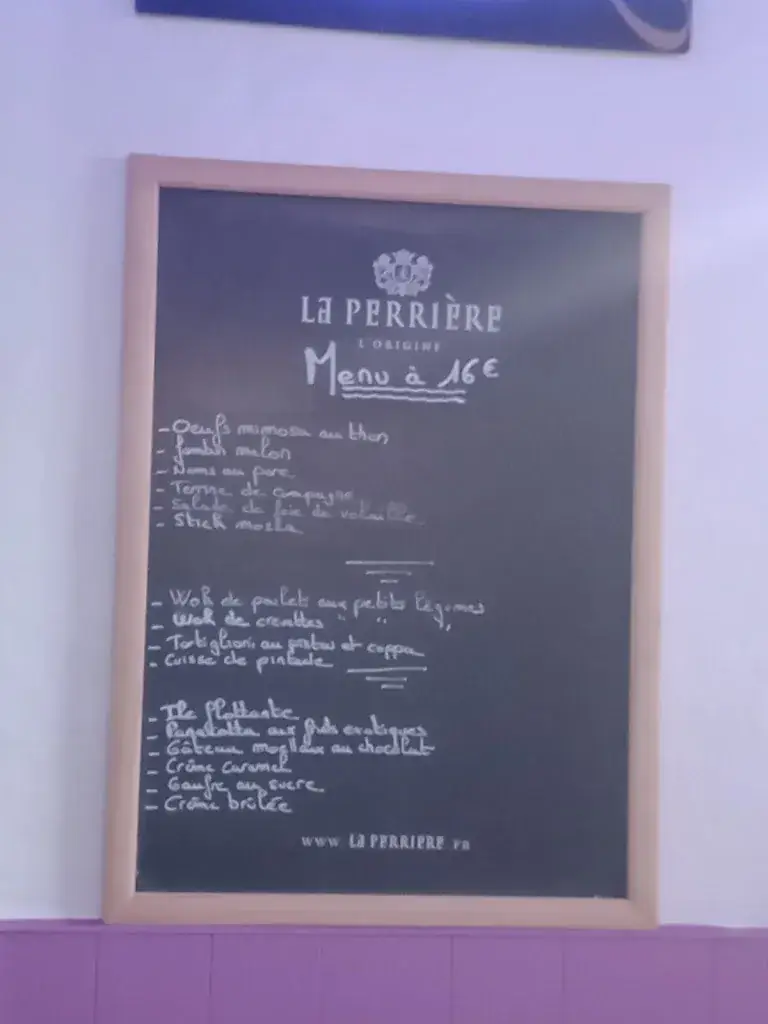 LA PERRIÈRE
L'ORIGINE
Menu à 16€
- Oeufs mimosa au thon
- Jambon melon
- Nems au porc
- Terrine de campagne
- Salade de foie de volaille
- Stick mozza
- Wok de poulet aux petits légumes
- Wok de crevettes " " "
- Tortiglioni au pistou et coppa
- Cuisse de pintade
- Ile flottante
- Panakotta aux fruits exotiques
- Gâteau moelleux au chocolat
- Crème caramel
- Gaufre au sucre
- Crème brûlée
WWW LA PERRIERE FR